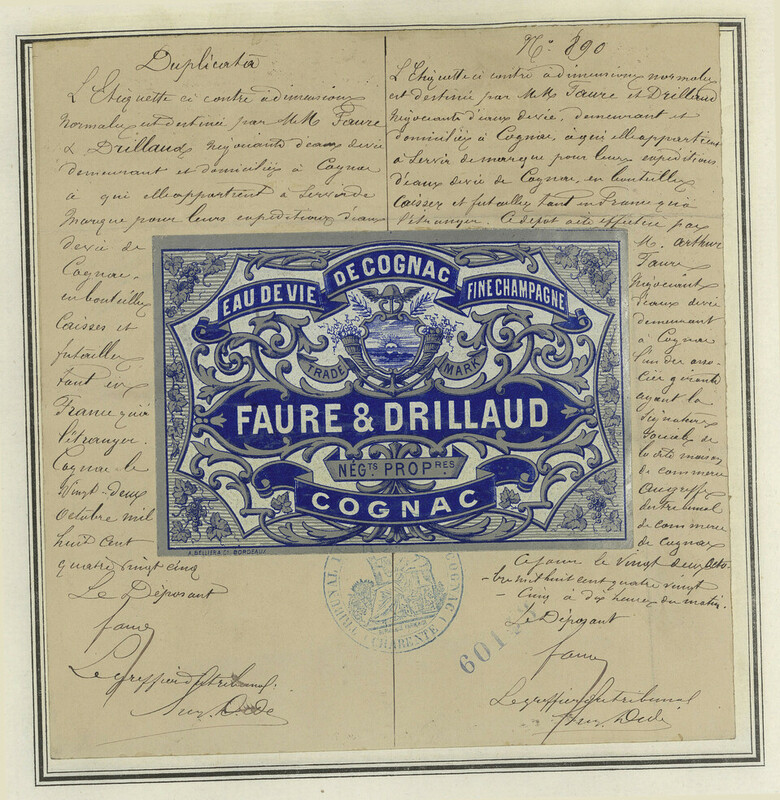 Duplicata
L'Etiquette ci contre a dimensions
normales est destinée par MM Faure
& Drillaud Négociants d'eaux de vie
demeurant et domiciliés à Cognac
à qui elle appartient à Servir de
Marque pour leurs expéditions d'eaux
de vie de
Cognac,
en bouteilles
Caisses et
futailles
tant en
France qu'à
l'étranger.
Cognac le
Vingt-deux
Octobre mil
huit cent
quatre vingt cinq
Le Déposant
Faure
Le greffier du tribunal
N° 890
L'Etiquette ci contre a dimensions normales
est destinée par MM Faure et Drillaud
Négociants d'eaux de vie, demeurant et
domiciliés à Cognac, à qui elle appartient
à Servir de marque pour leurs expéditions
d'eaux de vie de Cognac, en bouteilles
Caisses et futailles tant en France qu'à
l'étranger. Ce dépôt a été effectué par
M. Arthur
Faure
Négociant
d'eaux de vie
demeurant
à Cognac
l'un des asso-
ciés gérants
ayant la
Signature
Sociale de
la dite maison
de commerce
au greffe
du tribunal
de commerce
de Cognac
Ce jour le vingt deux octo-
-bre mil huit cent quatre vingt
-cinq à dix heures du matin.
Le Déposant
Faure
Le greffier du tribunal
EAU DE VIE DE COGNAC FINE CHAMPAGNE
TRADE MARK
FAURE & DRILLAUD
NÉGTS PROPRES
COGNAC
A. BELLIER & Cie BORDEAUX
TRIBUNAL COGNAC
CHARENTE